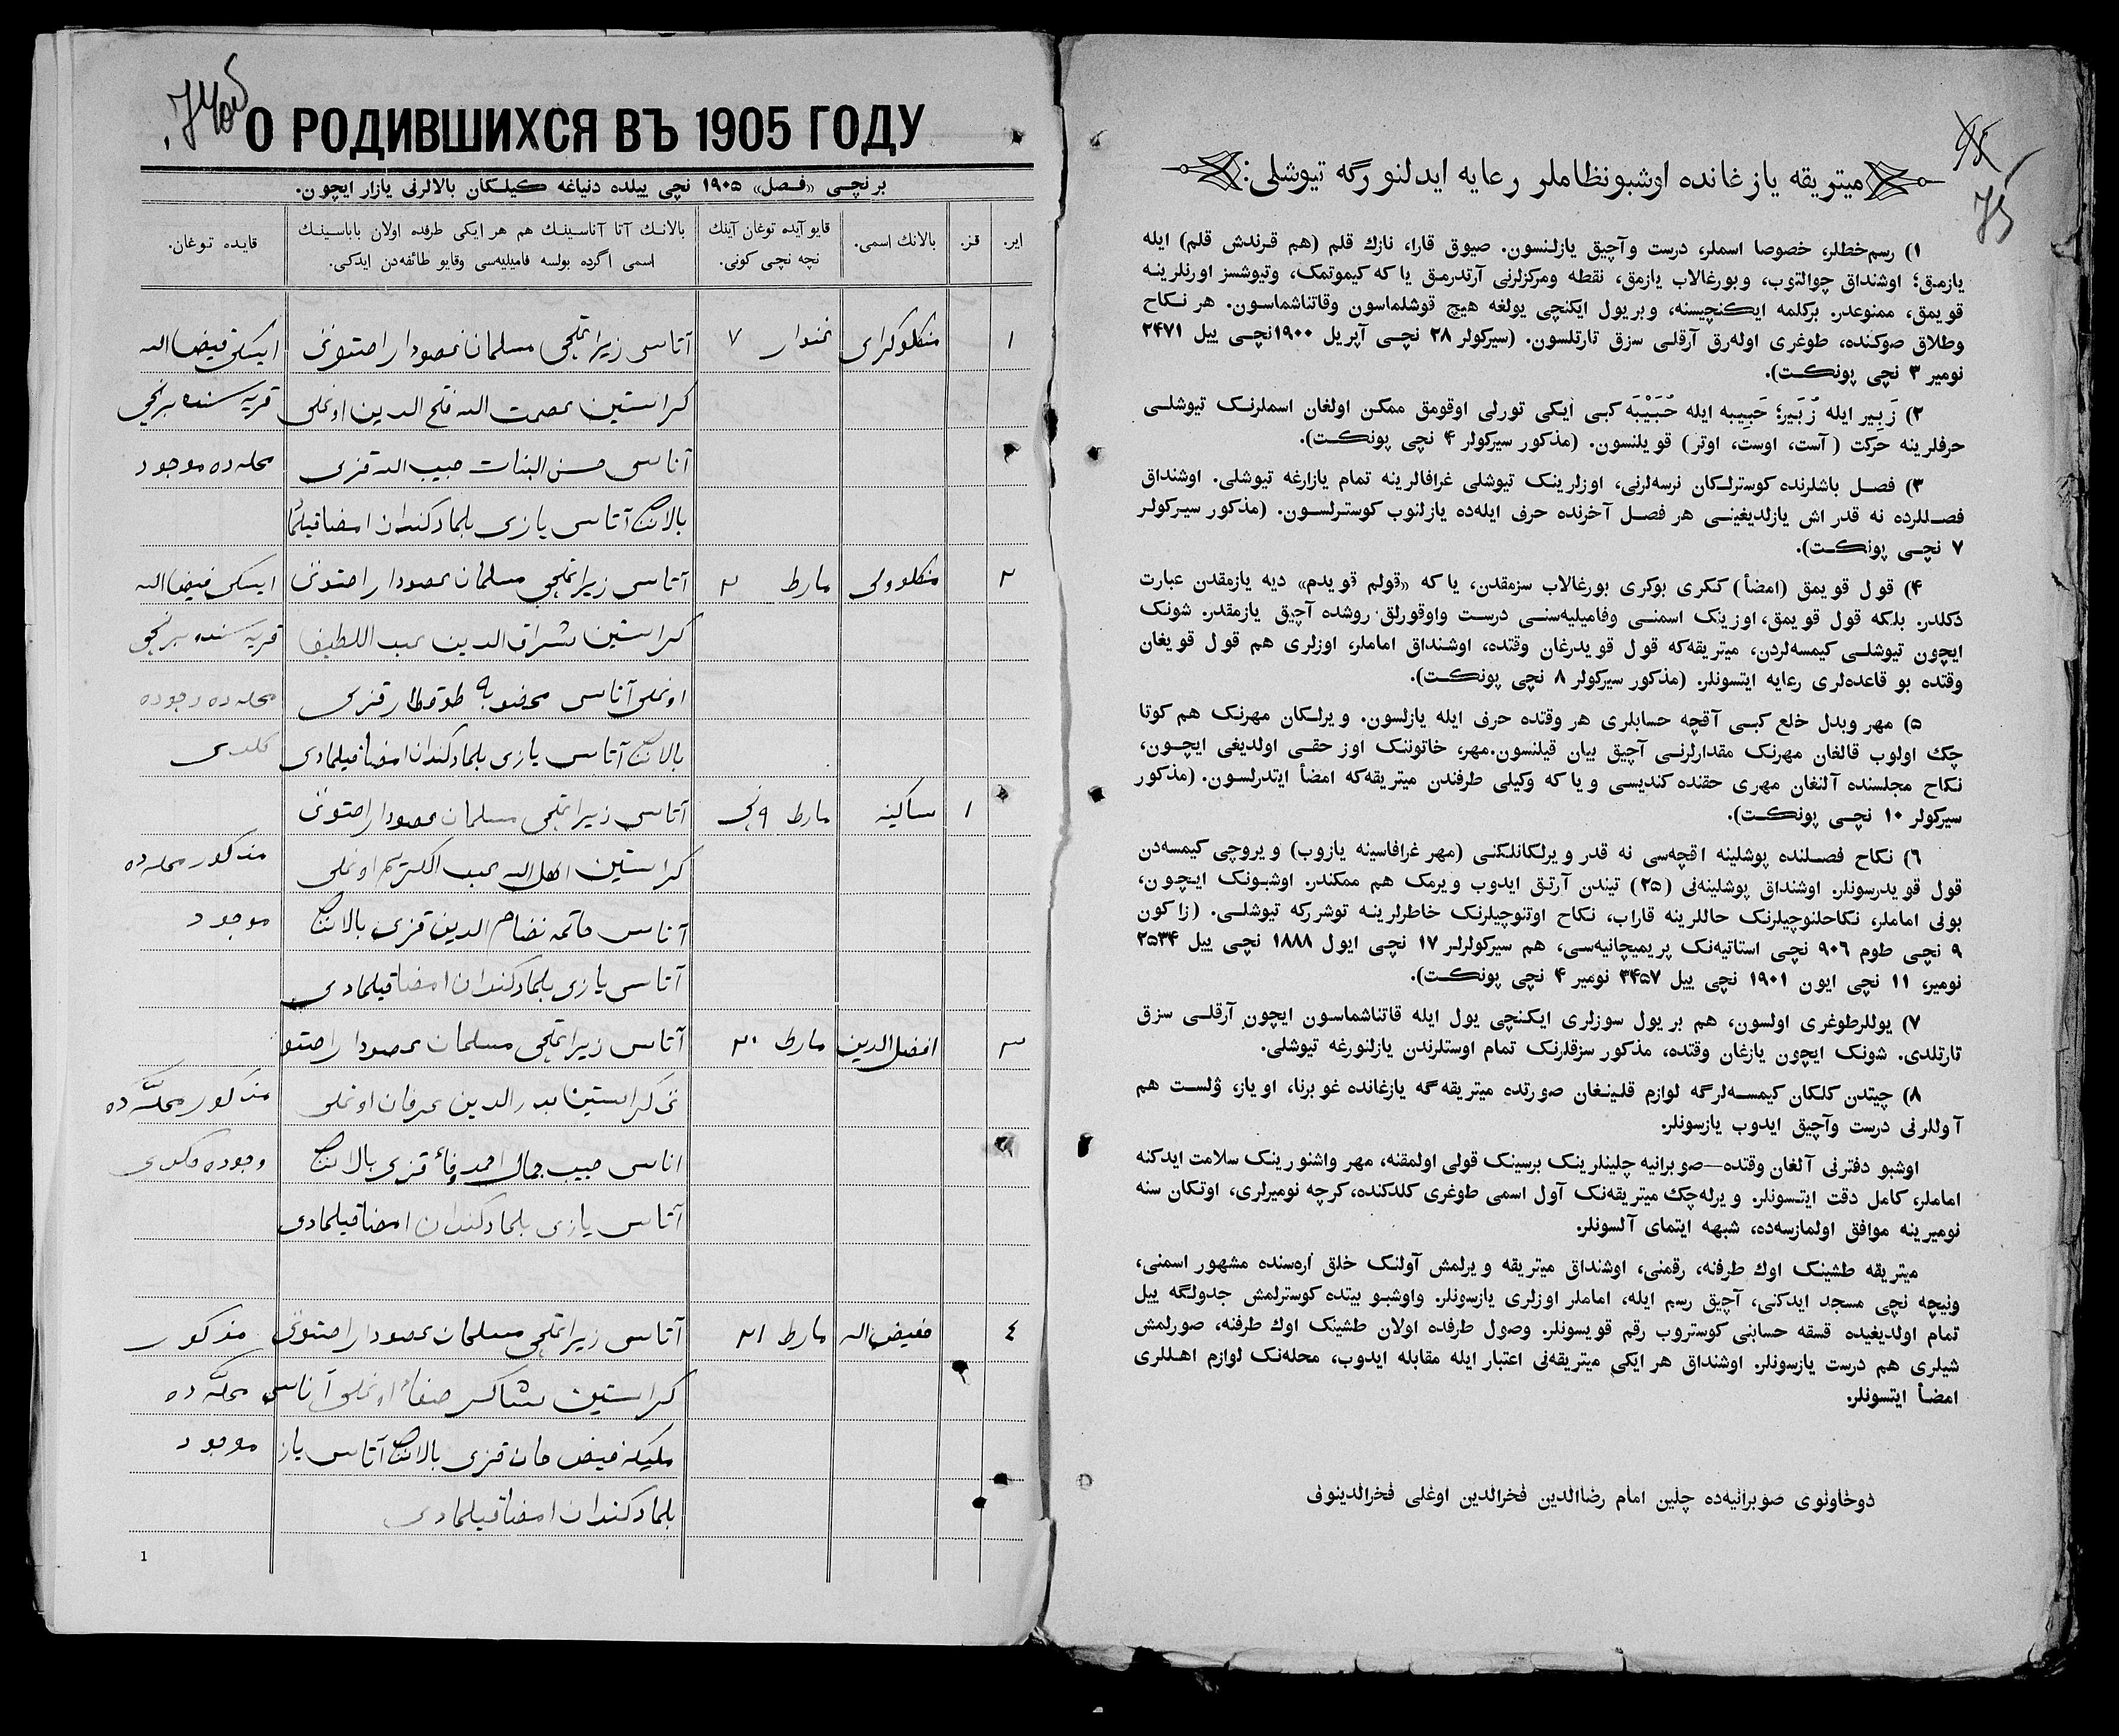 О РОДИВШИХСЯ ВЪ 1905 ГОДУ
برنچی «فصل» ۱۹۰۵ نچی ییلده دنیاغه كیلكان بالالرنی یازار ایچون.
ایر.
قز.
بالانك اسمی.
قایو آیده توغان آینك
نچه نچی كونی.
بالانك آتا آناسینك هم هر ایكی طرفده اولان باباسینك
اسمی اگرده بولسه فامیلیه‌سی وقایو طائفه‌دن ایدكی.
قایده توغان.
۱
منكلوكرای
۷
آتاسی زیراتچی مسلمان
ایسكی فیض الله
عصمت الله فتح الدین اوغلی
قریه سنده برنچی
آناسی حسن البنات حبیب الله قزی
محله ده موجود
بالاننك آتاسی یازی بلمادكندان امضا قیلما
۲
منكلوولی
مارط ۲
آتاسی زیراتچی مسلمان
ایسكی فیض الله
شراف الدین عبد اللطیف
قریه سنده برنچی
اوغلی آناسی محضوبه قزی
محله ده وجوده
بالاننك آتاسی یازی بلمادكندان امضا قیلمادی
كلدی
۱
ساكینه
مارط ۹ نچی
آتاسی زیراتچی مسلمان
عبد الكریم اوغلی
مذكور محله ده
آناسی فاتمه نضام الدین قزی بالاننك
موجود
آتاسی یازی بلمادكندان امضا قیلمادی
۳
افضل الدین
مارط ۲۰
آتاسی زیراتچی مسلمان
بدر الدین عرفان اوغلی
مذكور محلّه ده
اناسی حبیب جمال احمد وفا قزی بالاننك
وجوده كلدی
آتاسی یازی بلمادكندان امضا قیلمادی
٤
مارط ۲۱
آتاسی زیراتچی مسلمان
مذكور
شاكر صفا اوغلی آناسی
محلّه ده
ملیكه فیض خان قزی بالاننك آتاسی یاز
موجود
بلمادكندان امضا قیلمادی
1
75
میتریقه یازغانده اوشبو نظاملر رعایه ایدلنورگه تیوشلی:
۱) رسم‌خطلر، خصوصا اسملر، درست وآچیق یازلنسون. صیوق قارا، نازك قلم (هم قرندش قلم) ایله
یازمق؛ اوشنداق چوالتوب، وبورغالاب یازمق، نقطه ومركزلرنی آرتدرمق یا كه كیموتمك، وتیوشسز اورنلرینه
قویمق، ممنوعدر. بركلمه ایكنچیسنه، وبر یول ایكنچی یولغه هیچ قوشلماسون وقاتناشماسون. هر نكاح
وطلاق صوكنده، طوغری اوله‌رق آرقلی سزق تارتلسون. (سیركولر ۲۸ نچی آپریل ۱۹۰۰نچی ییل ۲۴۷۱
نومیر ۳ نچی پونكت).
۲) زَبِیر ایله زُبَیر؛ حَبِیبه ایله حُبَیْبَه كبی ایكی تورلی اوقومق ممكن اولغان اسملرنك تیوشلی
حرفلرینه حركت (آست، اوست، اوتر) قویلنسون. (مذكور سیركولر ۴ نچی پونكت).
۳) فصل باشلرنده كوسترلكان نرسه‌لرنی، اوزلرینك تیوشلی غرافالرینه تمام یازارغه تیوشلی. اوشنداق
فصللرده نه قدر اش یازلدیغینی هر فصل آخرنده حرف ایله‌ده یازلنوب كوسترلسون. (مذكور سیركولر
۷ نچی پونكت).
۴) قول قویمق (امضأ) كنكری بوكری بورغالاب سزمقدن، یا كه «قولم قویدم» دیه یازمقدن عبارت
دكلدر. بلكه قول قویمق، اوزینك اسمنی وفامیلیه‌سنی درست واوقورلق روشده آچیق یازمقدر. شونك
ایچون تیوشلی كیمسه‌لردن، میتریقه‌كه قول قویدرغان وقتده، اوشنداق اماملر، اوزلری هم قول قویغان
وقتده بو قاعده‌لری رعایه ایتسونلر. (مذكور سیركولر ۸ نچی پونكت).
۵) مهر وبدل خلع كبی آقچه حسابلری هر وقتده حرف ایله یازلسون. ویرلكان مهرنك هم كوتا
چك اولوب قالغان مهرنك مقدارلرنی آچیق بیان قیلنسون.مهر، خاتوننك اوز حقی اولدیغی ایچون،
نكاح مجلسنده آلنغان مهری حقنده كندیسی ویا كه وكیلی طرفندن میتریقه‌كه امضأ ایتدرلسون. (مذكور
سیركولر ۱۰ نچی پونكت).
۶) نكاح فصلنده پوشلینه اقچه‌سی نه قدر ویرلكانلكنی (مهر غرافاسینه یازوب) ویروچی كیمسه‌دن
قول قویدرسونلر. اوشنداق پوشلینه‌نی (۲۵) تیندن آرتق ایدوب ویرمك هم ممكندر. اوشبونك ایچون،
بونی اماملر، نكاحلنوچیلرنك حاللرینه قاراب، نكاح اوتنوچیلرنك خاطرلرینه توشررگه تیوشلی. (زاكون
۹ نچی طوم ۹۰۶ نچی استاتیه‌نك پریمیچانیه‌سی، هم سیركولرلر ۱۷ نچی ایول ۱۸۸۸ نچی ییل ۲۵۳۴
نومیر، ۱۱ نچی ایون ۱۹۰۱ نچی ییل ۳۴۵۷ نومیر ۴ نچی پونكت).
۷) یوللرطوغری اولسون، هم بر یول سوزلری ایكنچی یول ایله قاتناشماسون ایچون آرقلی سزق
تارتلدی. شونك ایچون یازغان وقتده، مذكور سزقلرنك تمام اوستلرندن یازلنورغه تیوشلی.
۸) چیتدن كلكان كیمسه‌لرگه لوازم قلینغان صورتده میتریقه‌گه یازغانده غوبرنا، اویاز، ۋلست هم
آوللرنی درست وآچیق ایدوب یازسونلر.
اوشبو دفترنی آلغان وقتده—صوبرانیه چلینلرینك برسینك قولی اولمقنه، مهر واشنورینك سلامت ایدكنه
اماملر، كامل دقت ایتسونلر. ویرله‌چك میتریقه‌نك آول اسمی طوغری كلدكنده، كرچه نومیرلری، اوتكان سنه
نومیرینه موافق اولمازسه‌ده، شبهه ایتمای آلسونلر.
میتریقه طشینك اوك طرفنه، رقمنی، اوشنداق میتریقه ویرلمش آولنك خلق اره‌سنده مشهور اسمنی،
ونیچه نچی مسجد ایدكنی، آچیق رسم ایله، اماملر اوزلری یازسونلر. واوشبو بیتده كوسترلمش جدولگه ییل
تمام اولدیغیده قسقه حسابنی كوستروب رقم قویسونلر. وصول طرفده اولان طشینك اوك طرفنه، صورلمش
شیلری هم درست یازسونلر. اوشنداق هر ایكی میتریقه‌نی اعتبار ایله مقابله ایدوب، محله‌نك لوازم اهللری
امضأ ایتسونلر.
دوخاونوی صوبرانیه‌ده چلین امام رضاالدین فخرالدین اوغلی فخرالدینوف